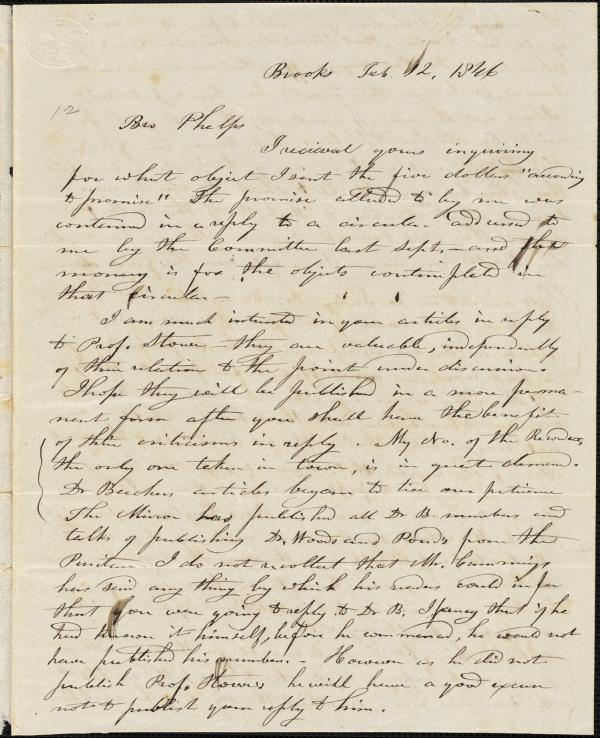 Brooks Feb. 12, 1846
12
Bro Phelps
I recieved yours inquiring
for what object I sent the five dollars "according
to promise" The promise alluded to by me was
contained in a reply to a circular addressed to
me by the Committee last Sept. – and the
money is for the objects contemplated in
that circular –
I am much intrested in your articles in reply
to Prof. Stowe – they are valuable, independently
of their relation to the point under discussion.
I hope they will be published in a more perma-
nent form after you shall have the benefit
of their criticisms in reply. My No. of the Recorder,
the only one taken in town, is in great demand.
Dr Beechers articles began to tire our patience
The Mirror has published all Dr B. numbers and
talks of publishing Dr. Woods and Ponds from the
Puritan. I do not recollect that Mr. Cummings
has said any thing by which his readers could infer
that you were going to reply to Dr B. I fancy that if he
had known it himself, before he commenced, he would not
have published his numbers. – However as he did not
publish Prof. Stowe's he will have a good excuse
not to publish your reply to him.